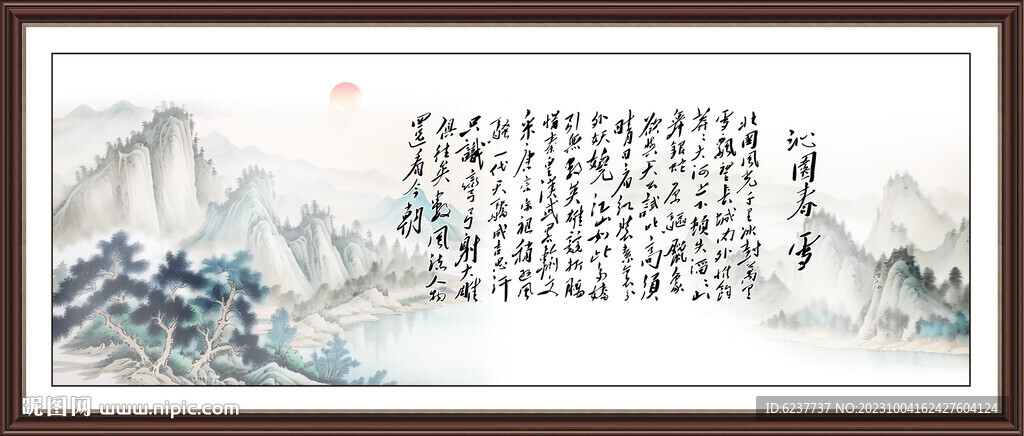 沁園春 雪
北國風光千里冰封萬里
雪飄望長城内外惟餘
莽莽大河上下頓失滔滔山
舞銀蛇原驅臘象
欲與天公試比高須
晴日看紅裝素裹分
外妖嬈江山如此多嬌
引無數英雄競折腰
惜秦皇漢武略輸文
采唐宗宋祖稍遜風
騷一代天驕成吉思汗
只識彎弓射大雕
俱往矣數風流人物
還看今朝
昵图网 www.nipic.com
ID:6237737 NO:20231004162427604124